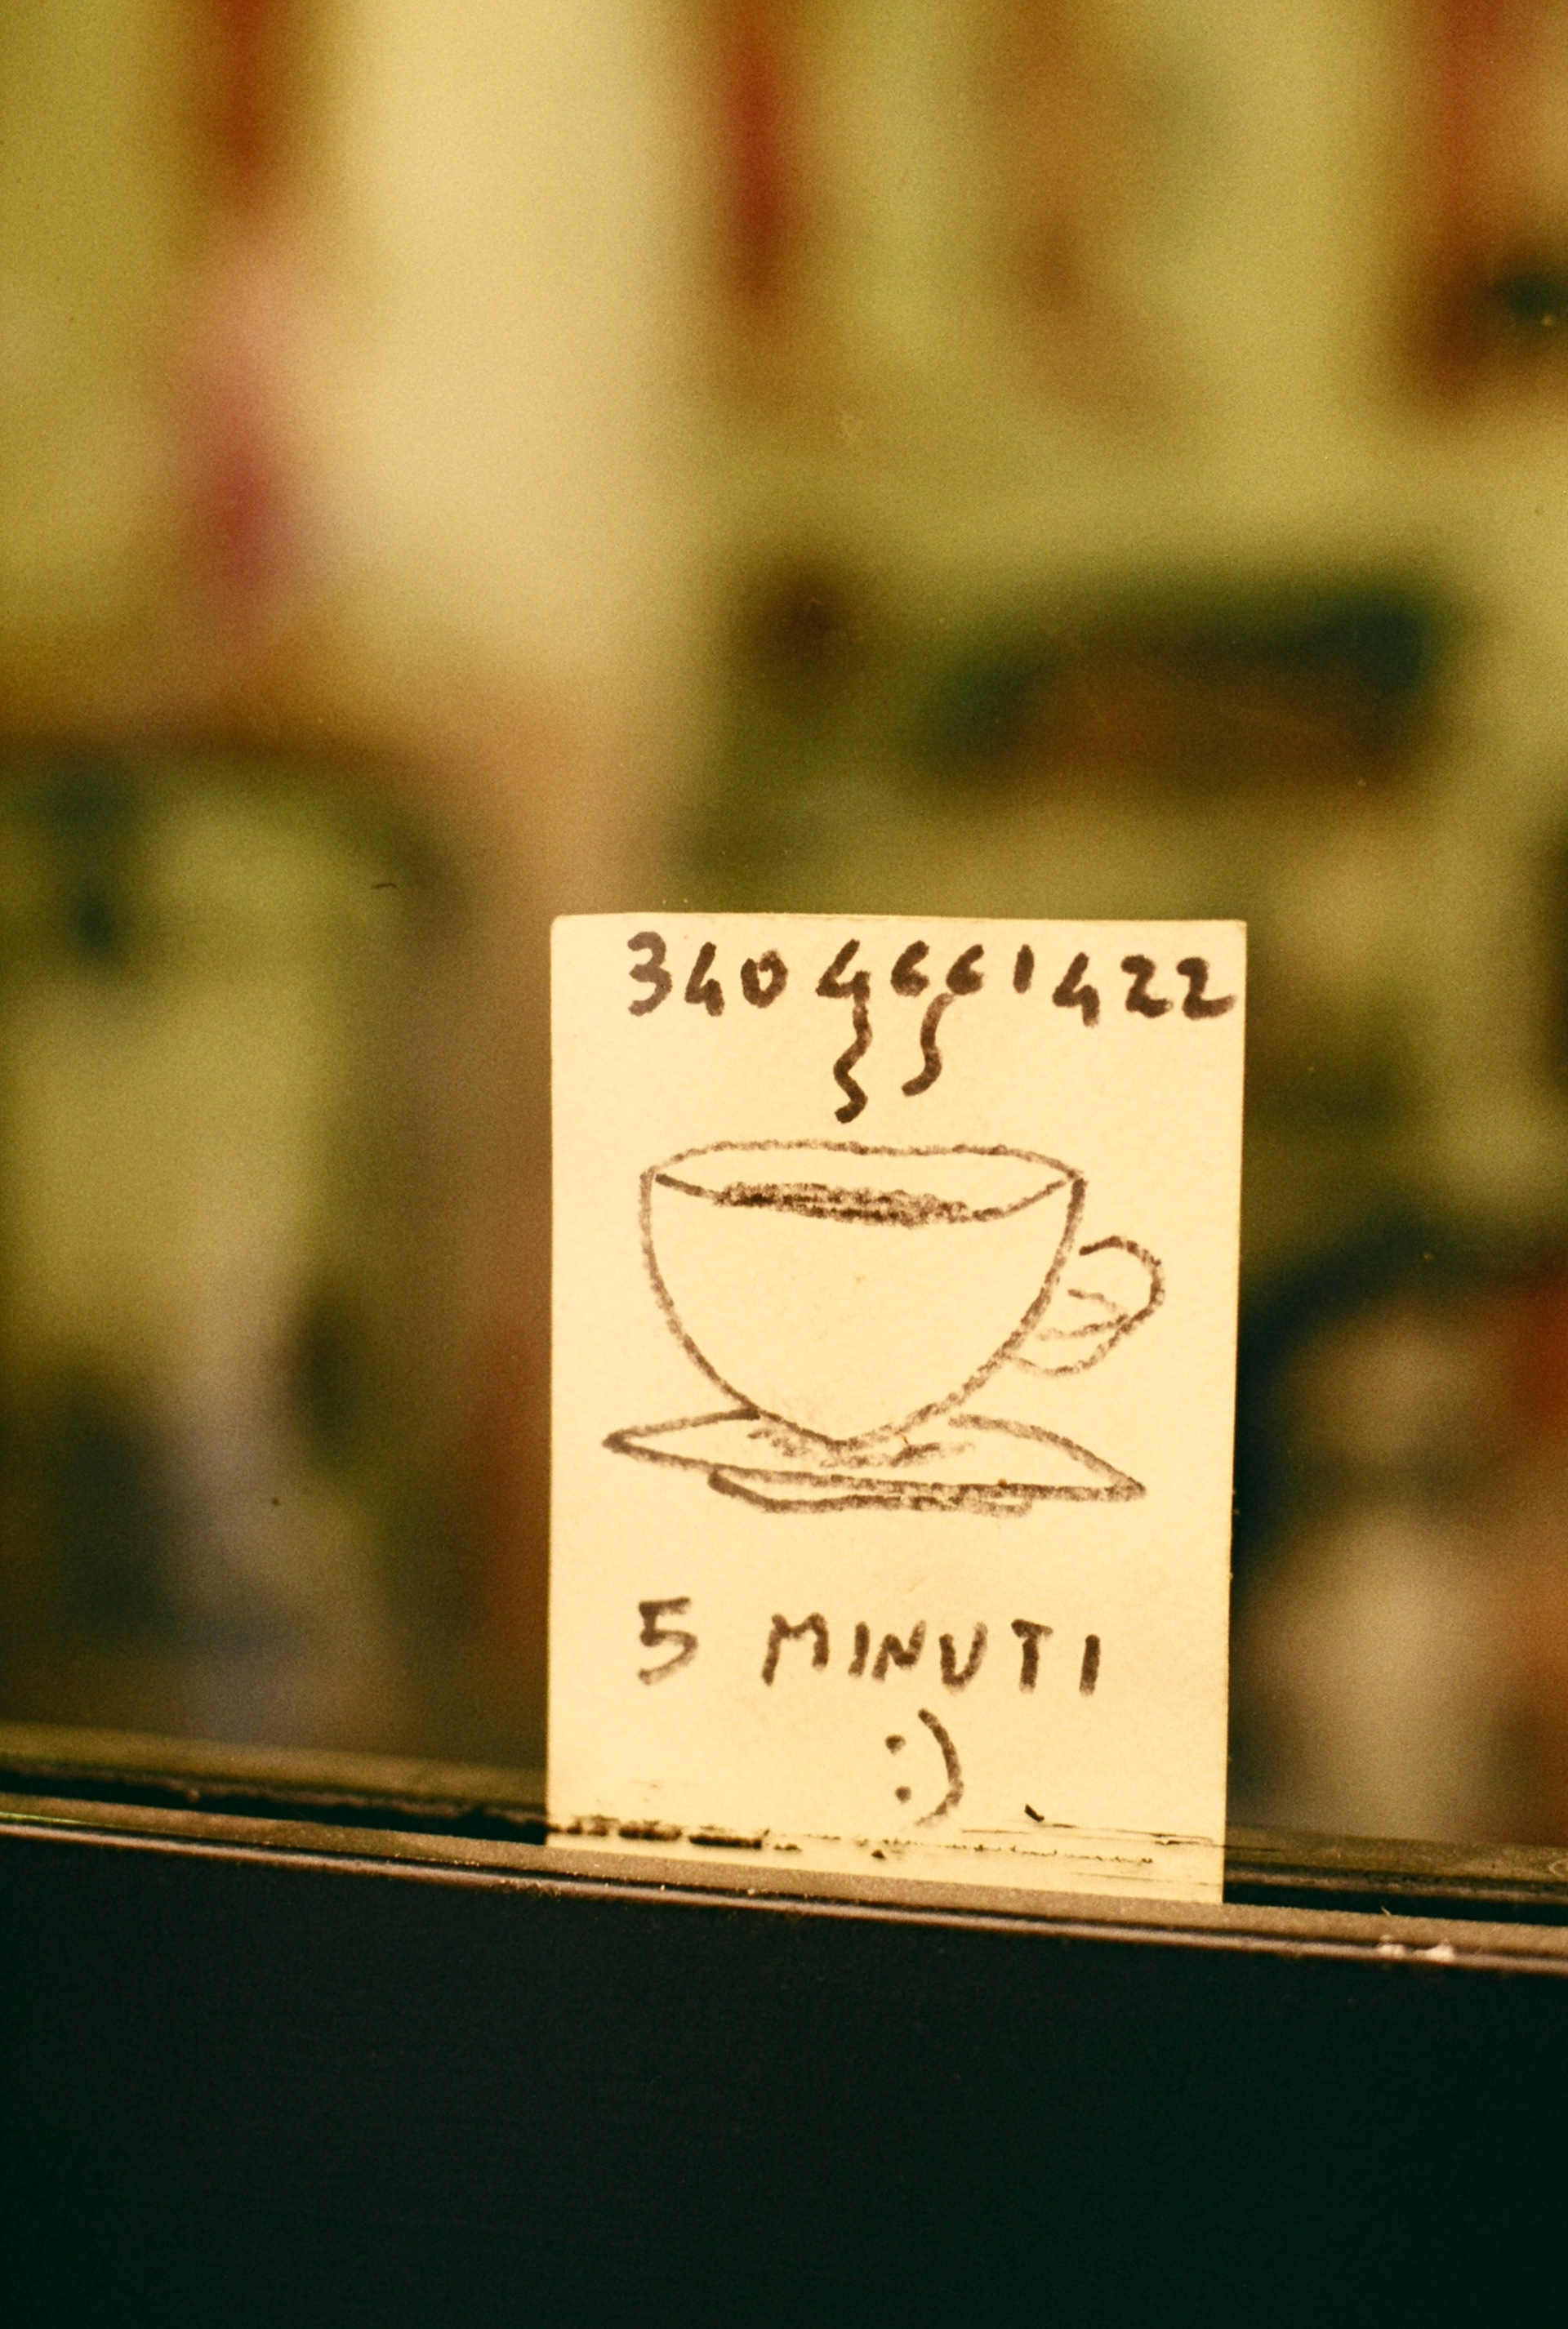 340 4661422
5 MINUTI
:)